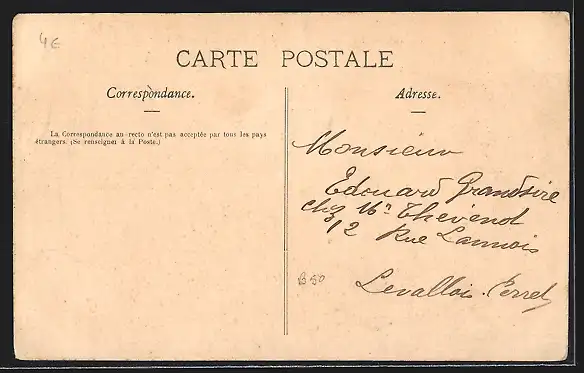 4€
CARTE POSTALE
Correspondance.
Adresse.
La Correspondance au recto n'est pas acceptée par tous les pays
étrangers. (Se renseigner à la Poste.)
Monsieur
Edouard Grandsire
chez Mr Thevenot
12 Rue Lannois
Levallois-Perret
B50